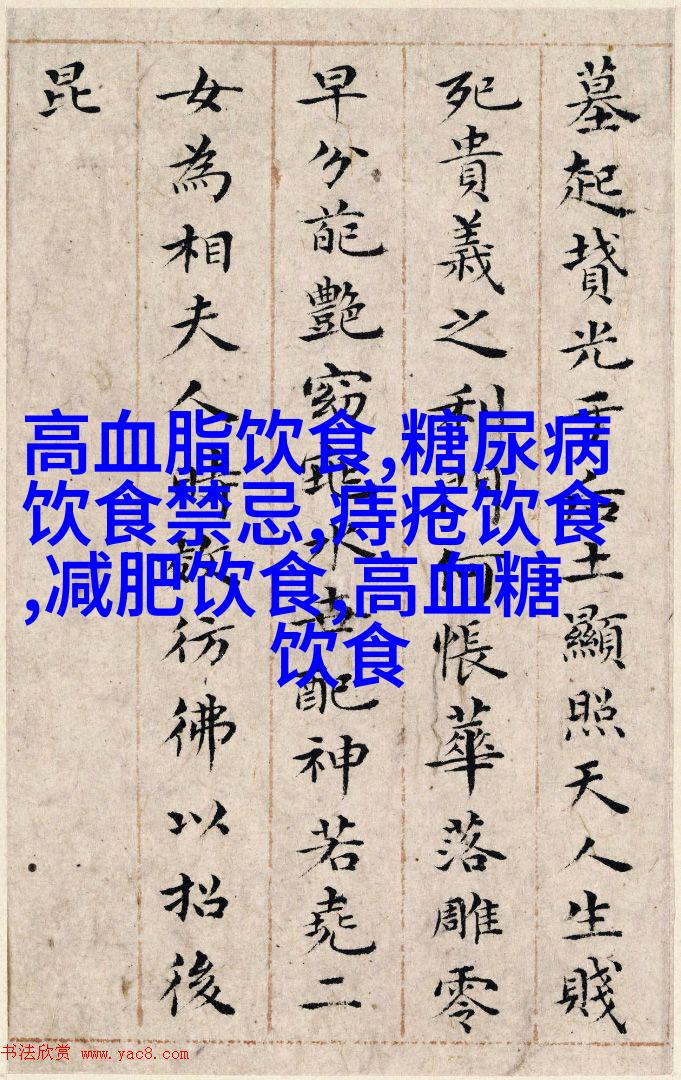 墓起光于后土顯照天人生賤
死貴義之利門何悵華落雕零
早分葩艷窈窕配神若堯二
女為相夫人時彷彿以招後
昆
高血脂饮食,糖尿病
饮食禁忌,痔疮饮食
,减肥饮食,高血糖
饮食
书法欣赏 www.yac8.com